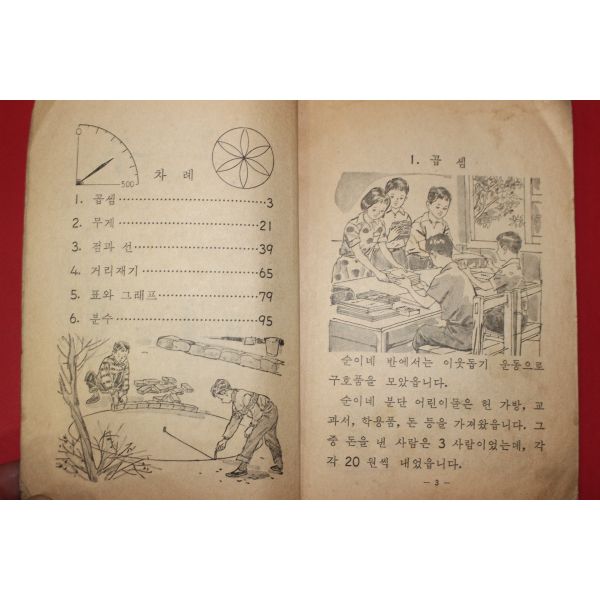 0
500
차 례
1. 곱셈 3
2. 무게 21
3. 점과 선 39
4. 거리재기 65
5. 표와 그래프 79
6. 분수 95
1. 곱 셈
순이네 반에서는 이웃돕기 운동으로
구호품을 모았읍니다.
순이네 분단 어린이들은 헌 가방, 교
과서, 학용품, 돈 등을 가져왔읍니다. 그
중 돈을 낸 사람은 3 사람이었는데, 각
각 20 원씩 내었읍니다.
— 3 —